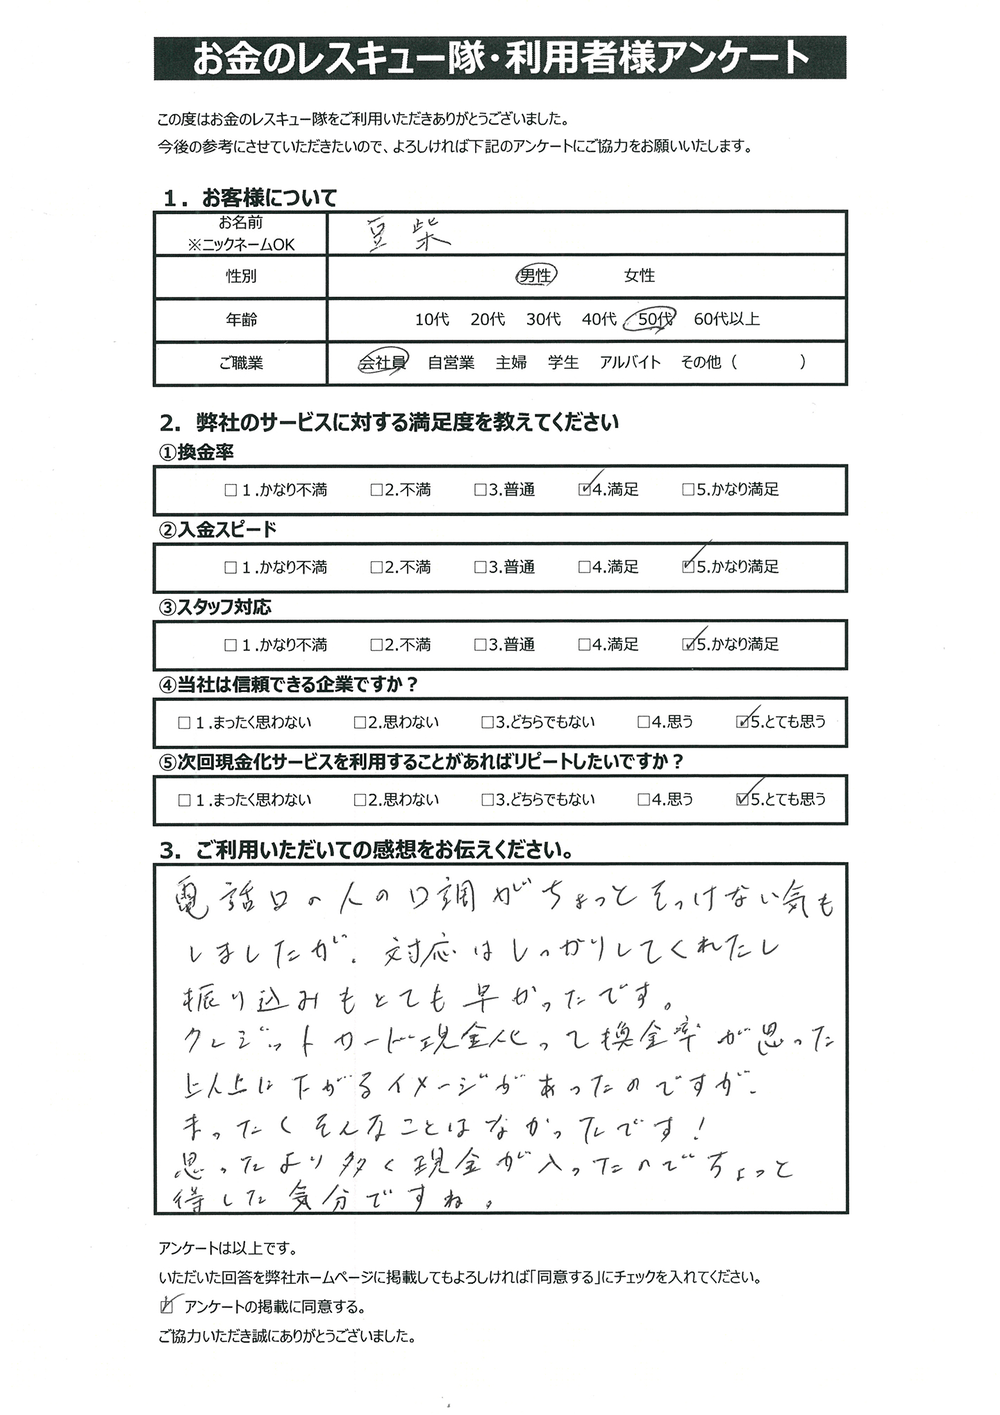 お金のレスキュー隊・利用者様アンケート
この度はお金のレスキュー隊をご利用いただきありがとうございました。
今後の参考にさせていただきたいので、よろしければ下記のアンケートにご協力をお願いいたします。
1．お客様について
お名前
※ニックネームOK
豆柴
性別 男性 女性
年齢 10代 20代 30代 40代 50代 60代以上
ご職業 会社員 自営業 主婦 学生 アルバイト その他（ ）
2．弊社のサービスに対する満足度を教えてください
①換金率
□1.かなり不満 □2.不満 □3.普通 ☑4.満足 □5.かなり満足
②入金スピード
□1.かなり不満 □2.不満 □3.普通 □4.満足 ☑5.かなり満足
③スタッフ対応
□1.かなり不満 □2.不満 □3.普通 □4.満足 ☑5.かなり満足
④当社は信頼できる企業ですか？
□1.まったく思わない □2.思わない □3.どちらでもない □4.思う ☑5.とても思う
⑤次回現金化サービスを利用することがあればリピートしたいですか？
□1.まったく思わない □2.思わない □3.どちらでもない □4.思う ☑5.とても思う
3．ご利用いただいての感想をお伝えください。
電話口の人の口調がちょっとそっけない気も
しましたが、対応はしっかりしてくれたし
振り込みもとても早かったです。
クレジットカード現金化って換金率が思った
以上に下がるイメージがあったのですが、
まったくそんなことはなかったです！
思ったより多く現金が入ったのでちょっと
得した気分ですね。
アンケートは以上です。
いただいた回答を弊社ホームページに掲載してもよろしければ「同意する」にチェックを入れてください。
☑ アンケートの掲載に同意する。
ご協力いただき誠にありがとうございました。